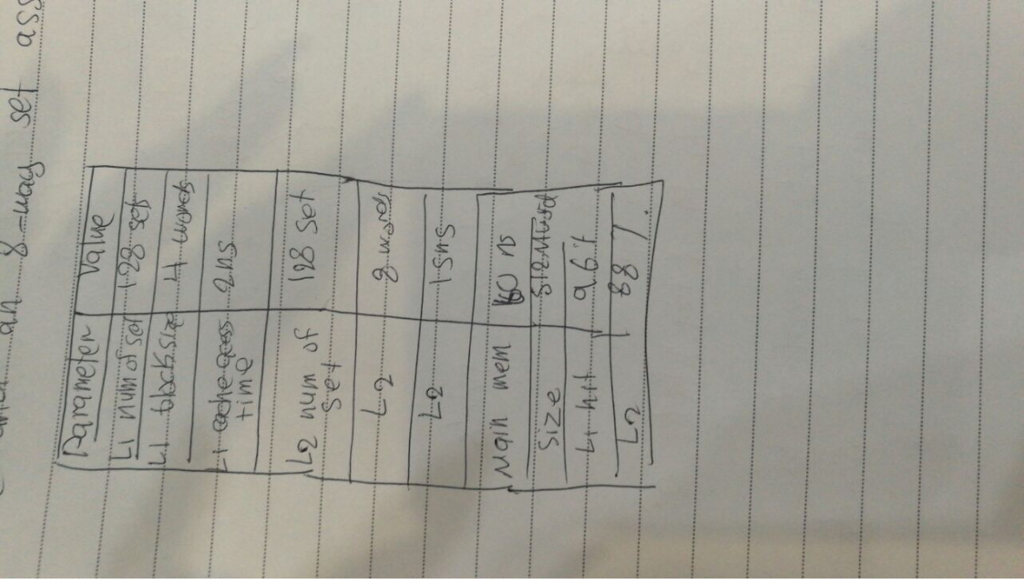 and an 8-way set ass
Parameter Value
L1 num of set 128 set
L1 block size 4 words
L1 cache access time 2ns
L2 num of set 128 set
L2 8 words
L2 15ns
Main mem ns
Size
L1 hit 96%
L2 88 %